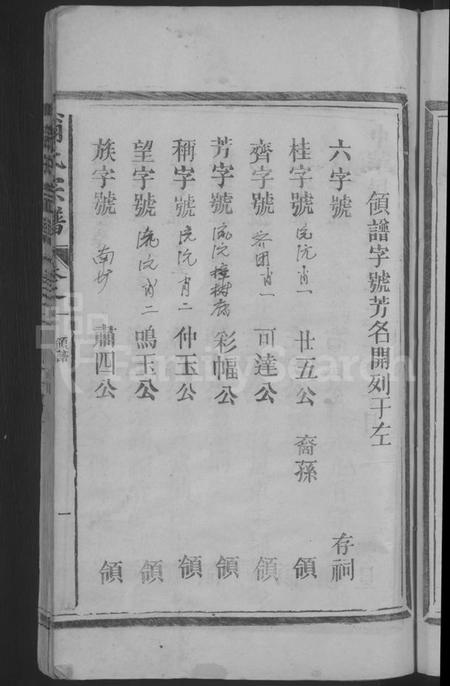 領譜字號芳名開列于左
六字號 存祠
桂字號 肖一 廿五公 裔孫 領
齊字號 肖一 可達公 領
芳字號 彩幅公 領
稱字號 肖二 仲玉公 領
望字號 肖二 鳴玉公 領
族字號 南 蕭四公 領
氏宗譜 卷 領譜 一
FamilySearch